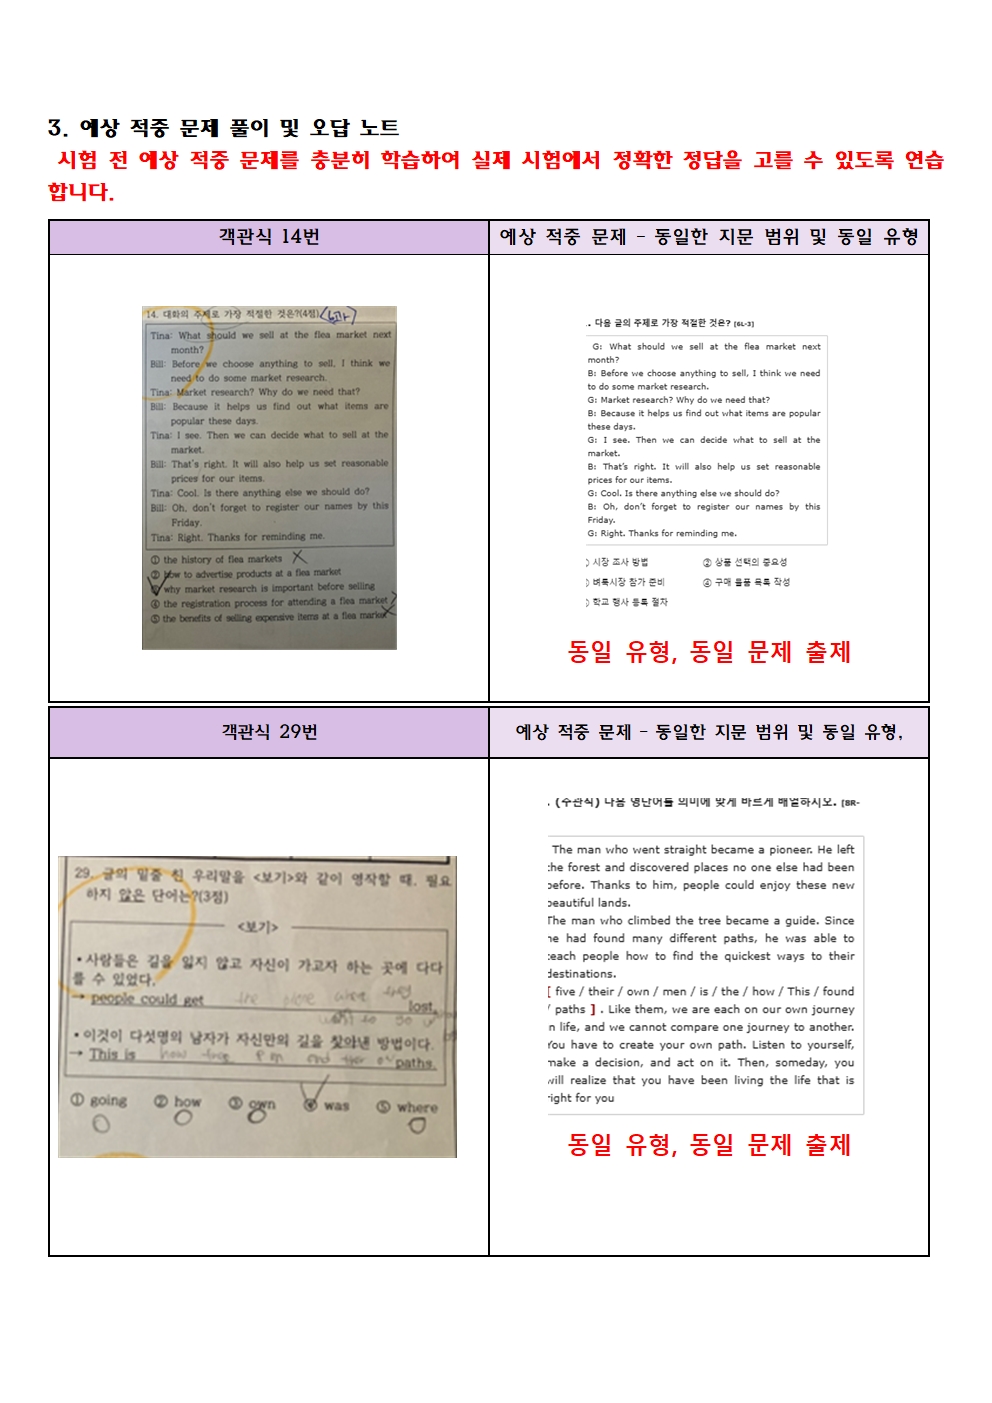 3. 예상 적중 문제 풀이 및 오답 노트
시험 전 예상 적중 문제를 충분히 학습하여 실제 시험에서 정확한 정답을 고를 수 있도록 연습
합니다.
객관식 14번
14. 대화의 주제로 가장 적절한 것은?(4점) <6과>
Tina: What should we sell at the flea market next
month?
Bill: Before we choose anything to sell, I think we
need to do some market research.
Tina: Market research? Why do we need that?
Bill: Because it helps us find out what items are
popular these days.
Tina: I see. Then we can decide what to sell at the
market.
Bill: That's right. It will also help us set reasonable
prices for our items.
Tina: Cool. Is there anything else we should do?
Bill: Oh, don't forget to register our names by this
Friday.
Tina: Right. Thanks for reminding me.
① the history of flea markets
② how to advertise products at a flea market
why market research is important before selling
④ the registration process for attending a flea market
⑤ the benefits of selling expensive items at a flea market
예상 적중 문제 - 동일한 지문 범위 및 동일 유형
. 다음 글의 주제로 가장 적절한 것은? [6L-3]
G: What should we sell at the flea market next
month?
B: Before we choose anything to sell, I think we need
to do some market research.
G: Market research? Why do we need that?
B: Because it helps us find out what items are popular
these days.
G: I see. Then we can decide what to sell at the
market.
B: That's right. It will also help us set reasonable
prices for our items.
G: Cool. Is there anything else we should do?
B: Oh, don't forget to register our names by this
Friday.
G: Right. Thanks for reminding me.
시장 조사 방법 ② 상품 선택의 중요성
벼룩시장 참가 준비 ④ 구매 물품 목록 작성
학교 행사 등록 절차
동일 유형, 동일 문제 출제
객관식 29번
29. 글의 밑줄 친 우리말을 <보기>와 같이 영작할 때, 필요
하지 않은 단어는?(3점)
<보기>
•사람들은 길을 잃지 않고 자신이 가고자 하는 곳에 다다
를 수 있었다.
→ people could get the place where they lost.
want to go
•이것이 다섯명의 남자가 자신만의 길을 찾아낸 방법이다.
→ This is how paths.
① going ② how ③ own ④ was ⑤ where
예상 적중 문제 - 동일한 지문 범위 및 동일 유형,
. (주관식) 다음 영단어를 의미에 맞게 바르게 배열하시오. [8R-
The man who went straight became a pioneer. He left
the forest and discovered places no one else had been
before. Thanks to him, people could enjoy these new
beautiful lands.
The man who climbed the tree became a guide. Since
he had found many different paths, he was able to
teach people how to find the quickest ways to their
destinations.
[ five / their / own / men / is / the / how / This / found
/ paths ] . Like them, we are each on our own journey
in life, and we cannot compare one journey to another.
You have to create your own path. Listen to yourself,
make a decision, and act on it. Then, someday, you
will realize that you have been living the life that is
right for you
동일 유형, 동일 문제 출제